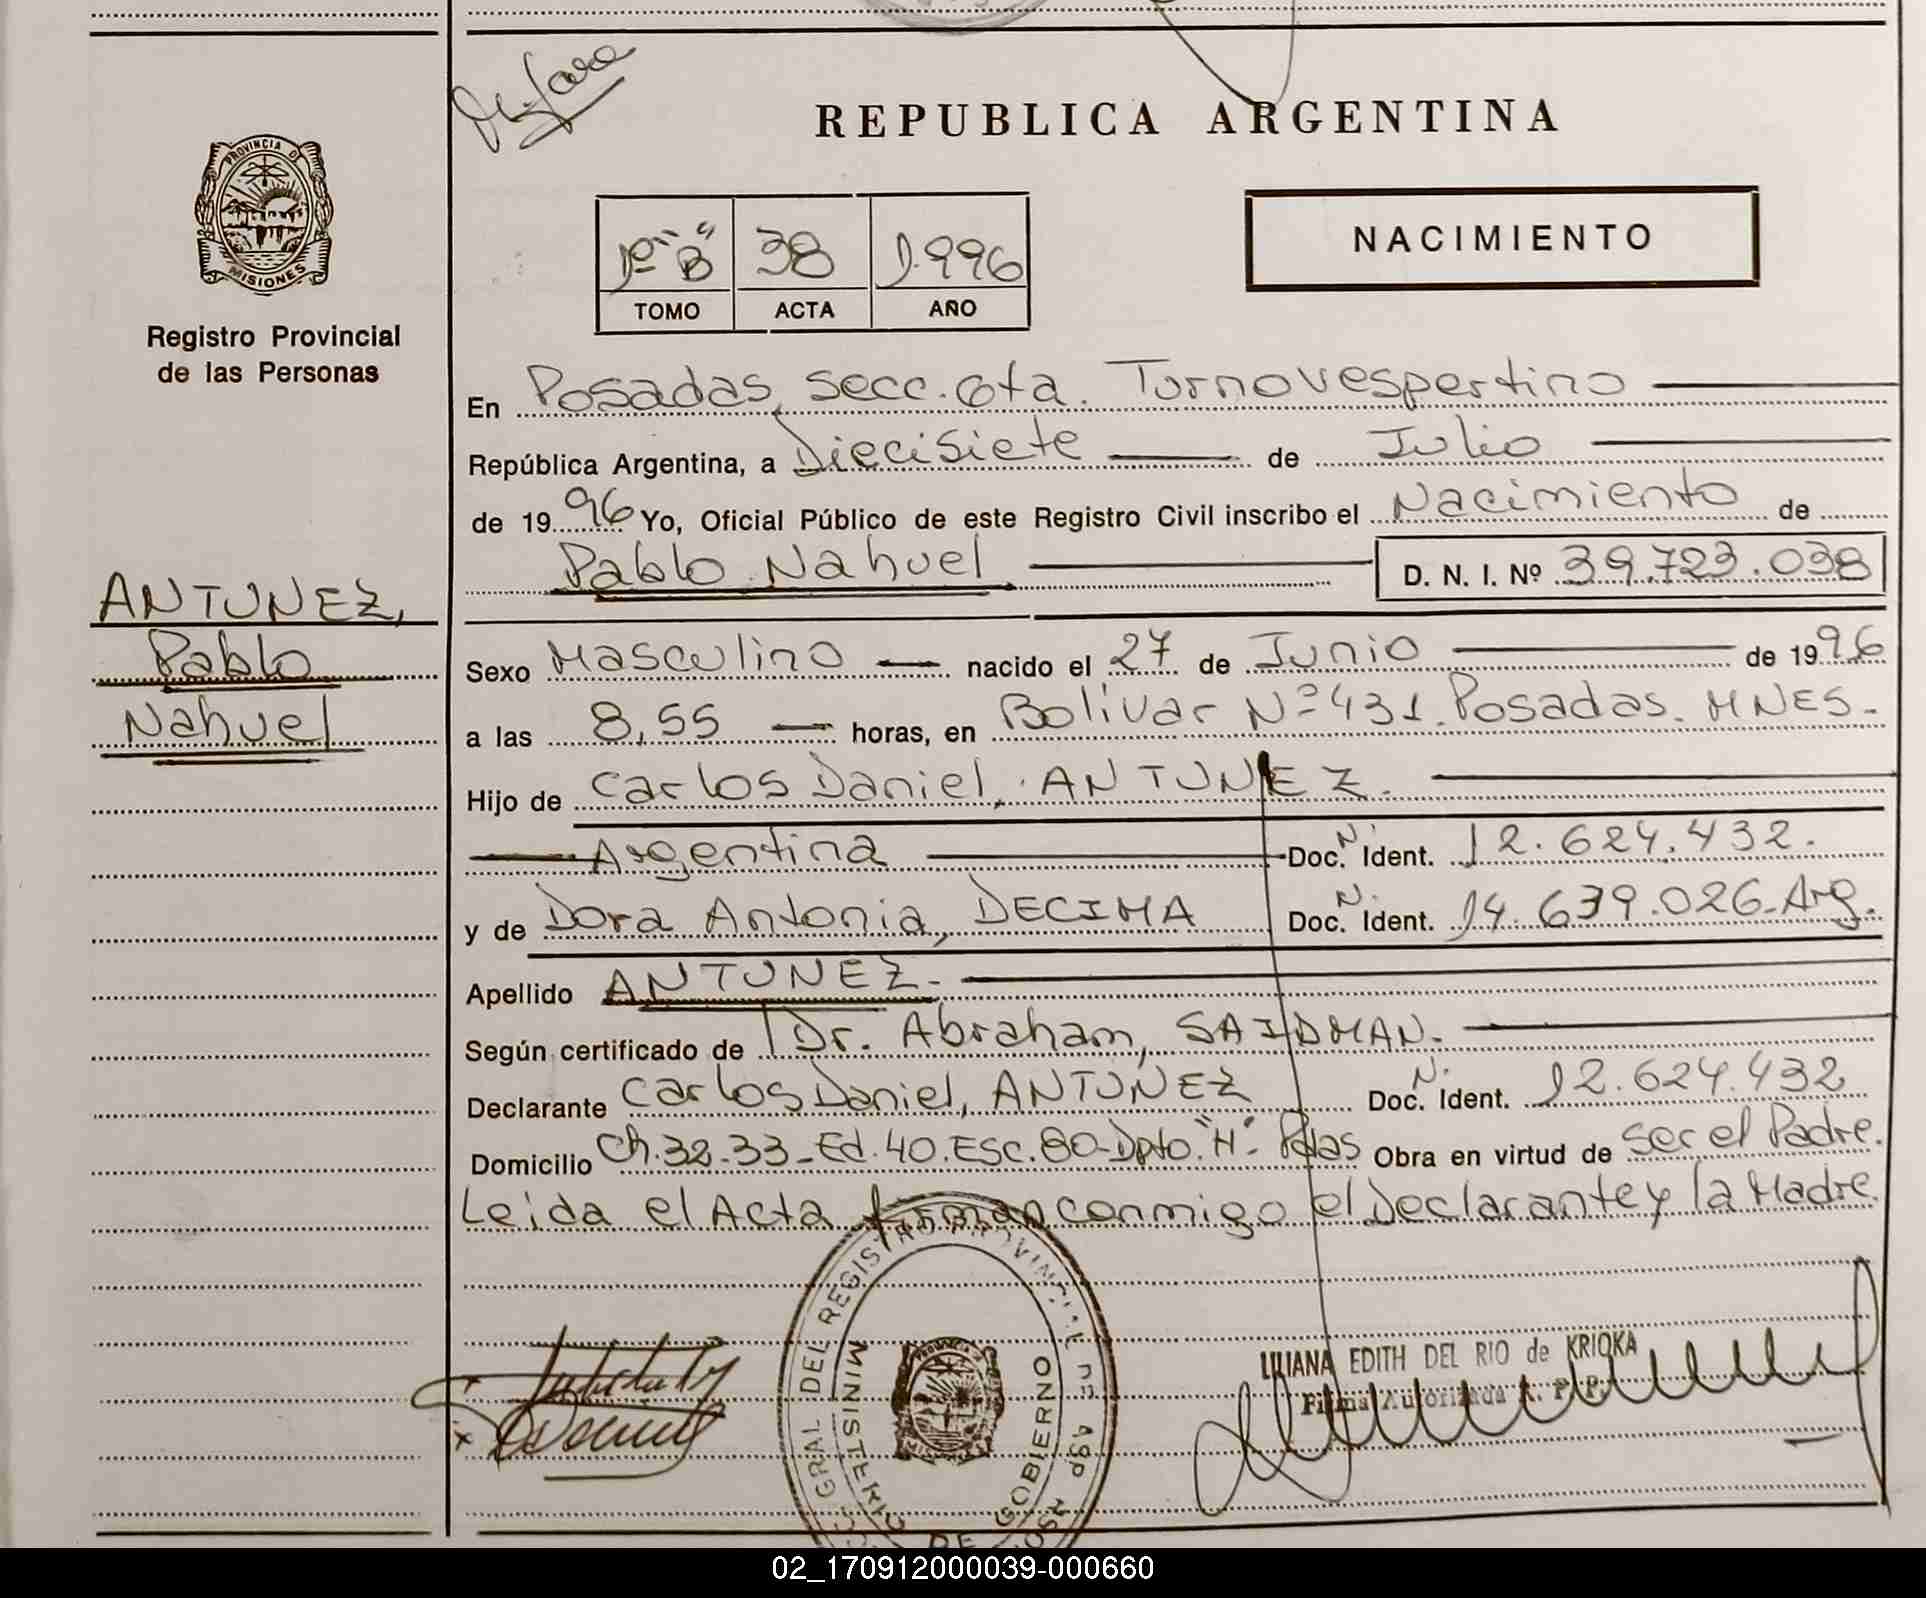 REPUBLICA ARGENTINA
PROVINCIA D
MISIONES
Registro Provincial
de las Personas
1º "B" 38 1.996
TOMO ACTA AÑO
NACIMIENTO
En Posadas, secc. 6ta. Turno vespertino
República Argentina, a Diecisiete de Julio
de 1996 Yo, Oficial Público de este Registro Civil inscribo el Nacimiento de
Pablo Nahuel D. N. I. Nº 39.723.038
ANTUNEZ,
Pablo
Nahuel
Sexo Masculino nacido el 27 de Junio de 1996
a las 8,55 horas, en Bolivar Nº 431. Posadas. MNES.
Hijo de Carlos Daniel, ANTUNEZ.
Argentina Doc. N. Ident. 12.624.432.
y de Dora Antonia, DECIMA Doc. N. Ident. 14.639.026. Arg.
Apellido ANTUNEZ.
Según certificado de Dr. Abraham, SAIDMAN.
Declarante Carlos Daniel, ANTUNEZ Doc. N. Ident. 12.624.432
Domicilio Ch. 32-33-Ed. 40. Esc. 80-Dpto. "H". Pdas Obra en virtud de ser el Padre.
Leida el Acta firman conmigo el Declarante y la Madre.
GRAL DEL REGISTRO PROVINCIAL
MINISTERIO DE GOBIERNO
LILIANA EDITH DEL RIO de KRIOKA
Firma Autorizada R. P. P.
02_170912000039-000660